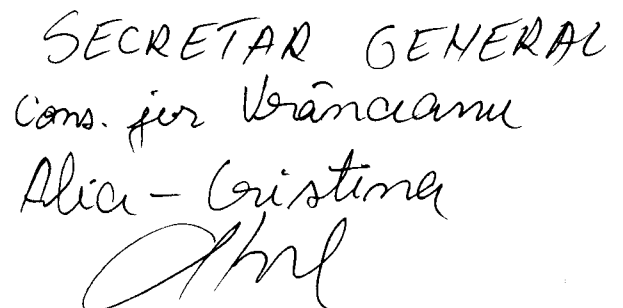 SECRETAR GENERAL
Cons. jur Vrânceanu
Alia - Cristina